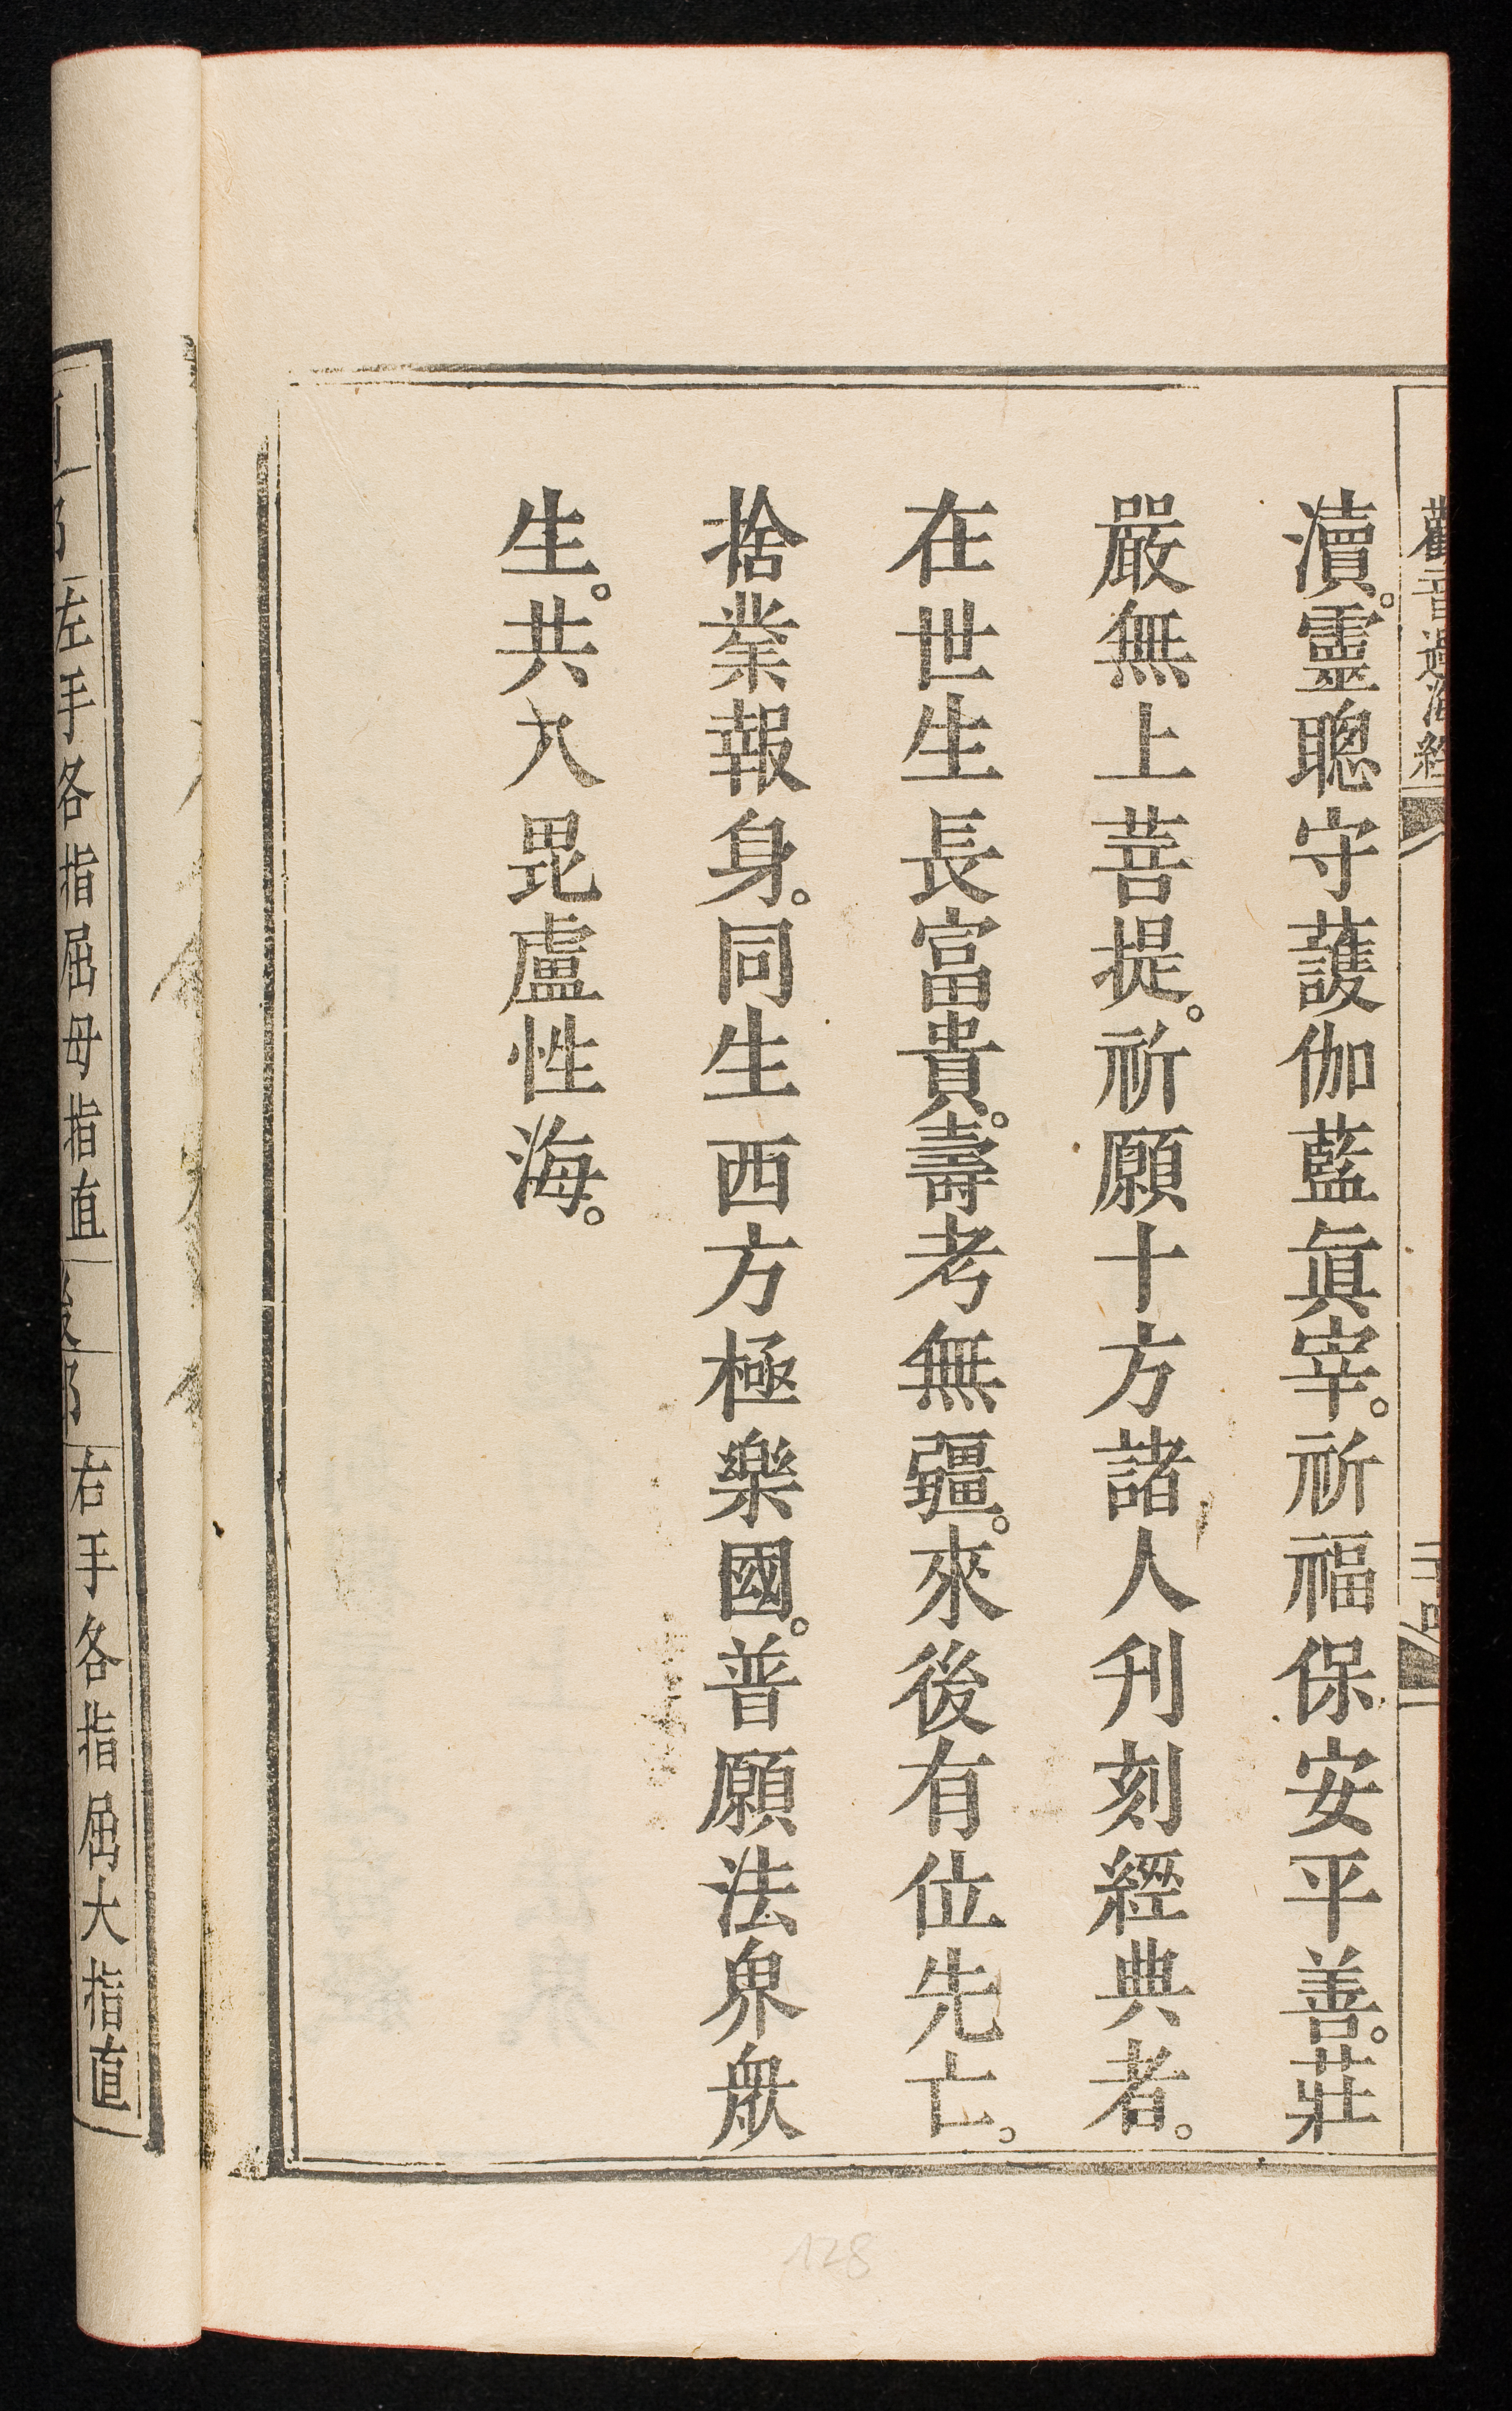 觀音過海經
瀆。靈聰守護伽藍眞宰。祈福保安平善。莊
嚴無上菩提。祈願十方諸人刋刻經典者。
在世生長富貴。壽考無疆。來後有位先亡。
捨業報身。同生西方極樂國。普願法界衆
生。共入毘盧性海。
128
左手各指屈母指直
右手各指屈大指直